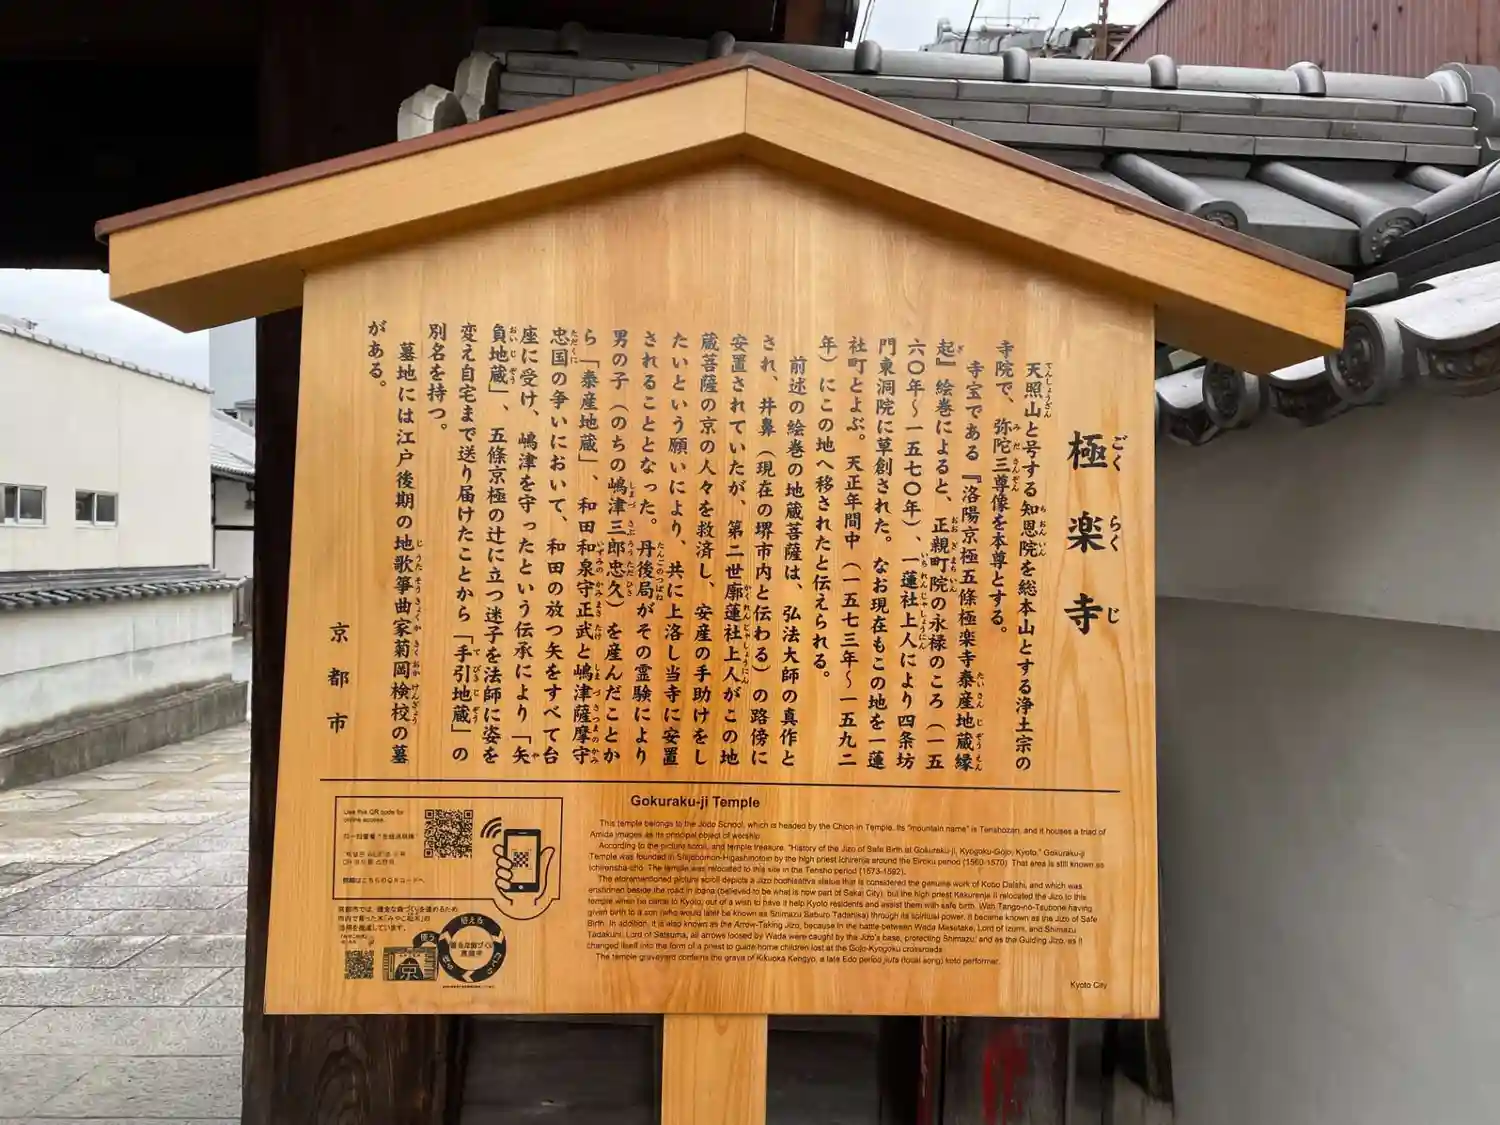 極楽寺
天照山と号する知恩院を総本山とする浄土宗の
寺院で、弥陀三尊像を本尊とする。
寺宝である『洛陽京極五條極楽寺泰産地蔵縁
起』絵巻によると、正親町院の永禄のころ（一五
六〇年～一五七〇年）、一蓮社上人により四条坊
門東洞院に草創された。なお現在もこの地を一蓮
社町とよぶ。天正年間中（一五七三年～一五九二
年）にこの地へ移されたと伝えられる。
前述の絵巻の地蔵菩薩は、弘法大師の真作と
され、井鼻（現在の堺市内と伝わる）の路傍に
安置されていたが、第二世廓蓮社上人がこの地
蔵菩薩の京の人々を救済し、安産の手助けをし
たいという願いにより、共に上洛し当寺に安置
されることとなった。丹後局がその霊験により
男の子（のちの嶋津三郎忠久）を産んだことか
ら「泰産地蔵」、和田和泉守正武と嶋津薩摩守
忠国の争いにおいて、和田の放つ矢をすべて台
座に受け、嶋津を守ったという伝承により「矢
負地蔵」、五條京極の辻に立つ迷子を法師に姿を
変え自宅まで送り届けたことから「手引地蔵」の
別名を持つ。
墓地には江戸後期の地歌箏曲家菊岡検校の墓
がある。
京都市
Gokuraku-ji Temple
This temple belongs to the Jodo School, which is headed by the Chion-in Temple. Its "mountain name" is Tenshozan, and it houses a triad of
Amida images as its principal object of worship.
According to the picture scroll, and temple treasure, "History of the Jizo of Safe Birth at Gokuraku-ji, Kyogoku-Gojo, Kyoto," Gokuraku-ji
Temple was founded in Shijobomon-Higashinotoin by the high priest Ichirenja around the Eiroku period (1560-1570). That area is still known as
Ichirensha-cho. The temple was relocated to this site in the Tensho period (1573-1592).
The aforementioned picture scroll depicts a Jizo bodhisattva statue that is considered the genuine work of Kobo Daishi, and which was
enshrined beside the road in Ibana (believed to be what is now part of Sakai City), but the high priest Kakurenje II relocated the Jizo to this
temple when he came to Kyoto, out of a wish to have it help Kyoto residents and assist them with safe birth. With Tango-no-Tsubone having
given birth to a son (who would later be known as Shimazu Saburo Tadahisa) through its spiritual power, it became known as the Jizo of Safe
Birth. In addition, it is also known as the Arrow-Taking Jizo, because in the battle between Wada Masutake, Lord of Izumi, and Shimazu
Tadakuni, Lord of Satsuma, all arrows loosed by Wada were caught by the Jizo's base, protecting Shimazu; and as the Guiding Jizo, as it
changed itself into the form of a priest to guide home children lost at the Gojo-Kyogoku crossroads.
The temple graveyard contains the grave of Kikuoka Kengyo, a late Edo period jiuta (local song) koto performer.
Kyoto City
Use this QR code for
online access.
詳細はこちらのQRコードへ
京都市では、健全な森づくりを進めるため
市内で育った木「みやこ杣木」の
活用を推進しています。
植える
使う
健全な森づくり
京